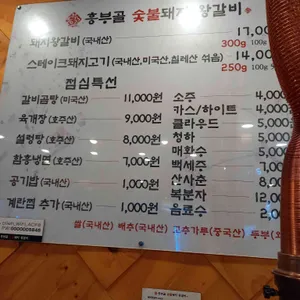 흥부골 숯불돼지왕갈비
돼지왕갈비(국내산) 17,00
300g 100g
스테이크돼지고기(국내산,미국산,칠레산 섞음) 14,00
250g 100g 5
점심특선
갈비곰탕(미국산) 11,000원
육개장(호주산) 9,000원
설렁탕(호주산) 8,000원
함흥냉면(호주산) 7,000원
공기밥(국내산) 1,000원
계란찜 추가(국내산) 1,000원
소주 4,000
카스/하이트 4,000
클라우드 5,000
청하 5,00
매화수 5,00
백세주 7,00
산사춘 8,00
복분자 12,00
음료수 2,0
쌀(국내산) 배추(국내산) 고추가루(중국산) 두부(